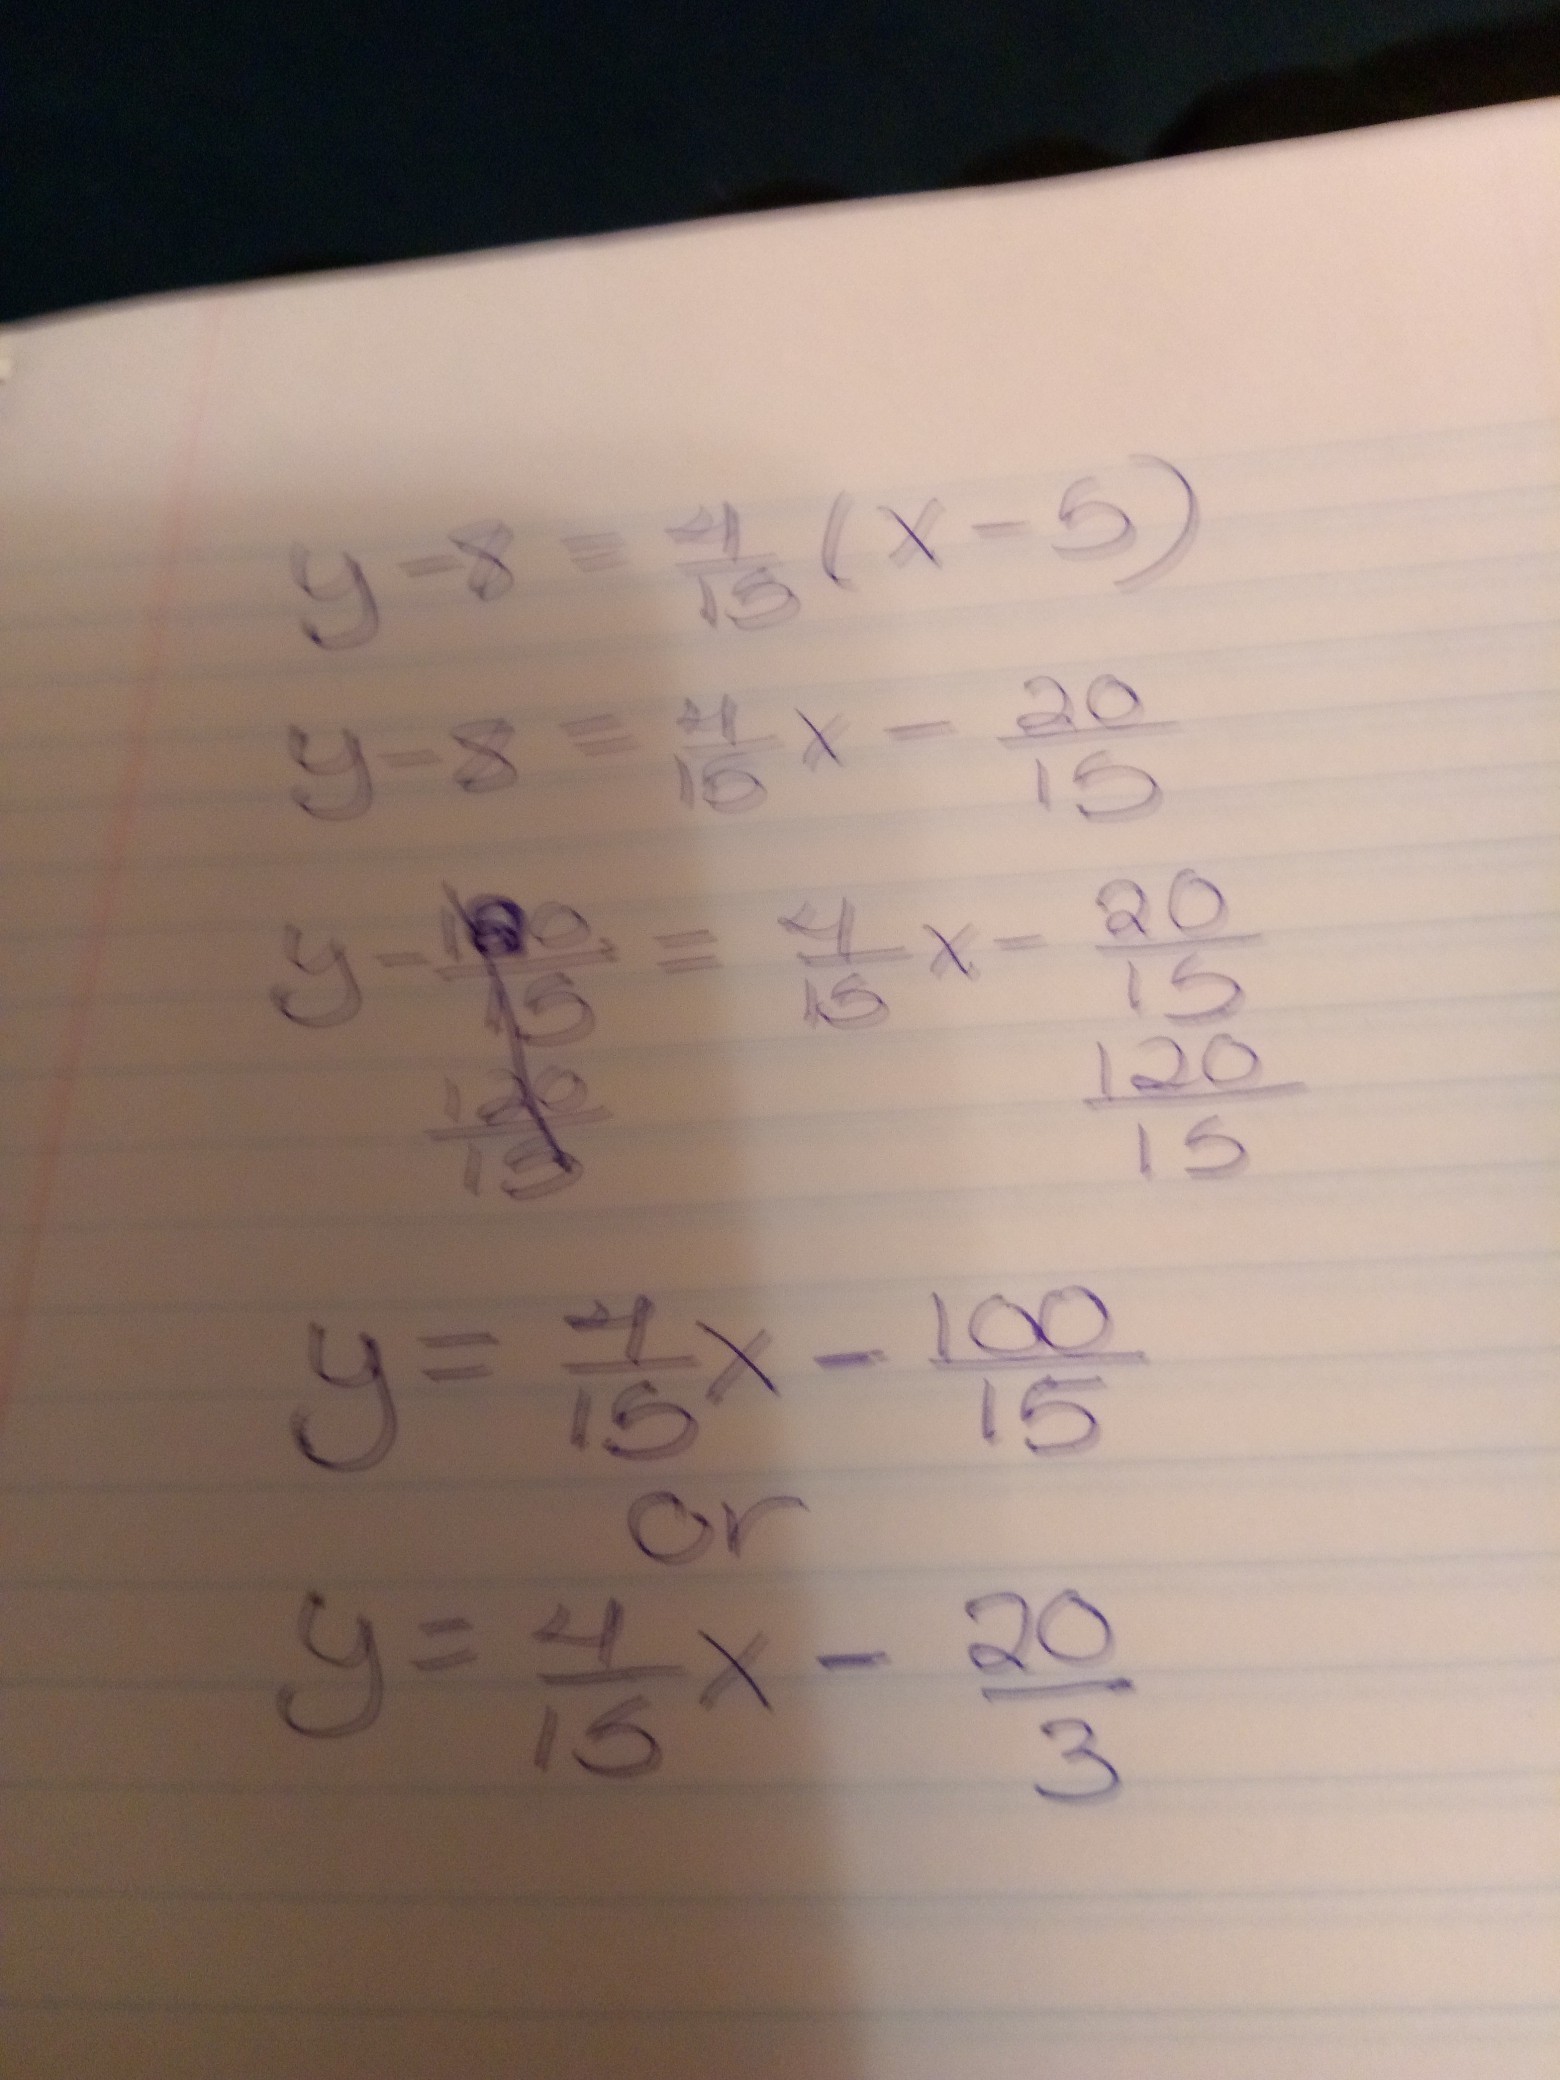 y - 8 = 4/15 (x - 5)
y - 8 = 4/15 x - 20/15
y - 120/15 = 4/15 x - 20/15
120/15 120/15
y = 4/15 x - 100/15
or
y = 4/15 x - 20/3